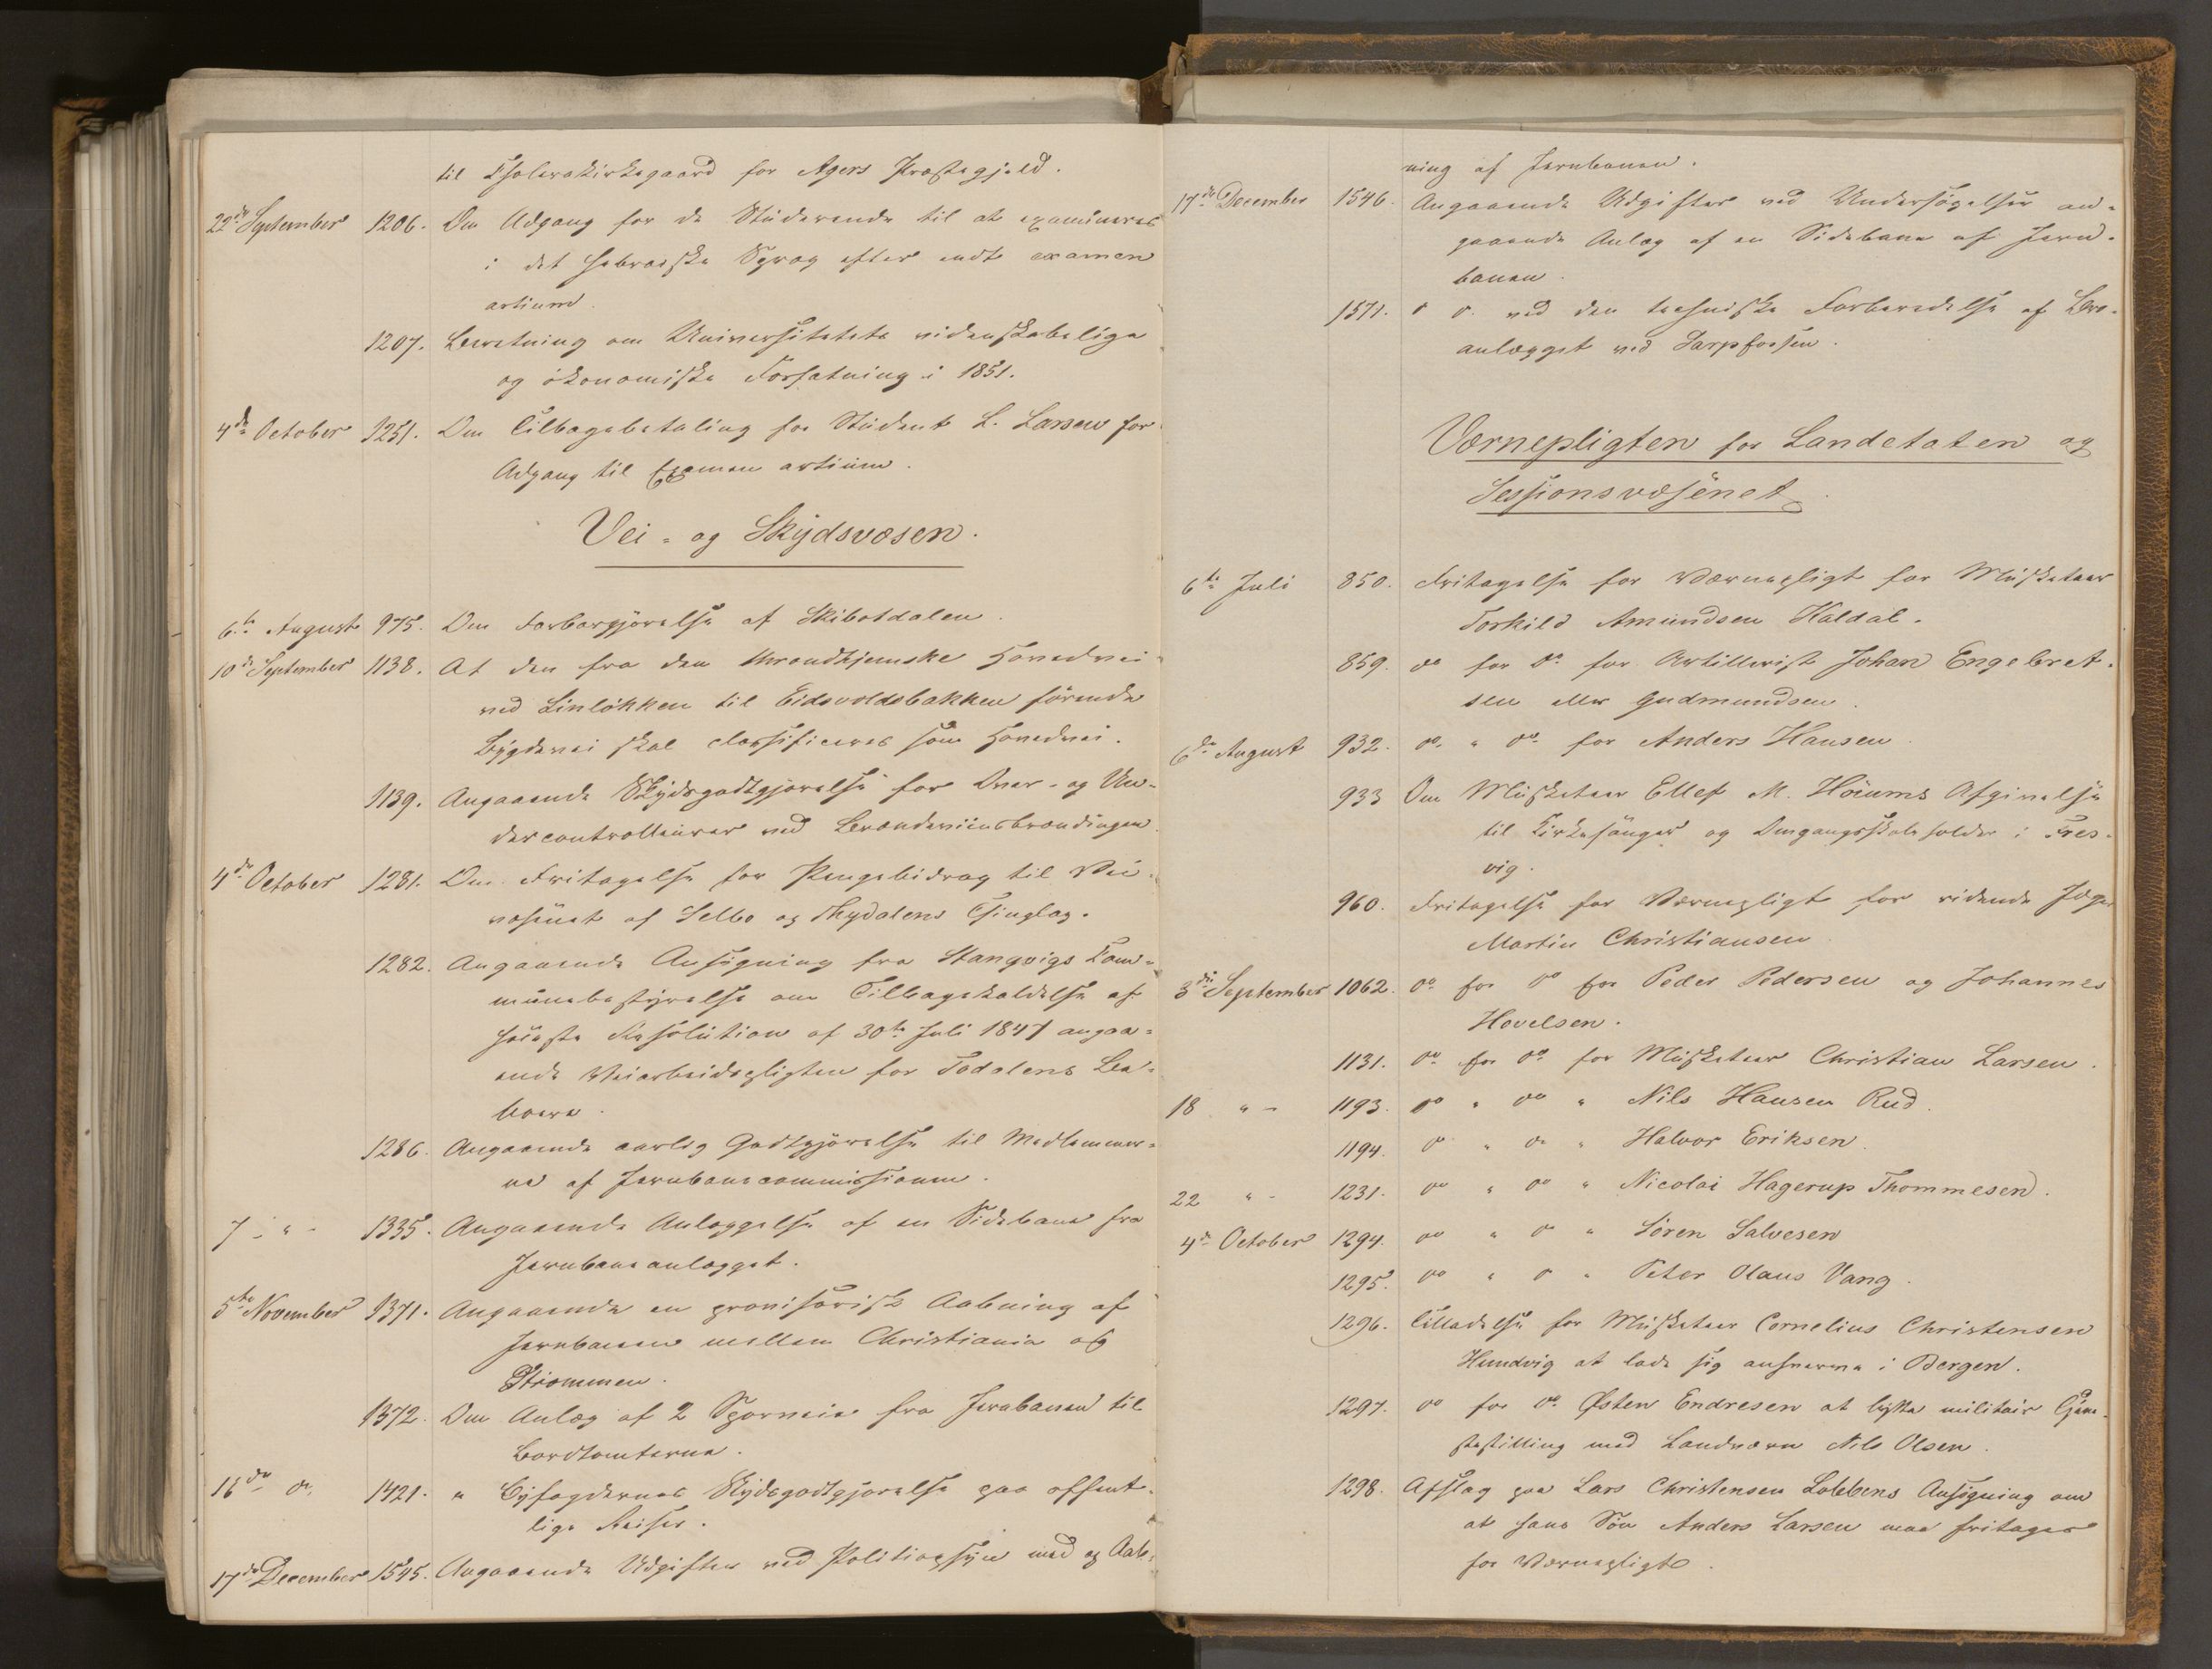 til Cholerakirkegaard for Agers Præstegjeld.
22de September 1206. Om Adgang for de Studerende til at examineres
i det hebraiske Sprog efter endt examen
artium.
1207. Beretning om Universitetets videnskabelige
og økonomiske Forfatning i 1851.
4de October 1251. Om Tilbagebetaling for Student L. Larsen for
Adgang til Examen artium.
Vei- og Skydsvæsen.
6te August 975. Om Farbargjørelse af Skibotdalen.
10de September 1138. At den fra den throndhjemske Hovedvei
ved Linløkken til Eidsvoldsbakken førende
Bygdevei skal classificeres som Hovedvei.
1139. Angaaende Skydsgodtgjørelse for Over- og Un-
dercontrolleurer ved Brændeviinsbrændingen.
4de October 1281. Om Fritagelse for Pengebidrag til Vei-
væsenet af Selbo og Thydalens Thinglag.
1282. Angaaende Ansøgning fra Stangvigs Com-
munebestyrelse om Tilbagekaldelse af
høieste Resolution af 30te Juli 1847 angaa-
ende Veiarbeidspligten for Todalens Be-
boere.
1286. Angaaende aarlig Godtgjørelse til Medlemmer-
ne af Jernbanecommissionen.
7 - " - 1335. Angaaende Anlæggelse af en Sidebane fra
Jernbaneanlægget.
5te November 1371. Angaaende en provisorisk Aabning af
Jernbanen mellem Christiania og
Strømmen.
1372. Om Anlæg af 2 Sporveie fra Jernbanen til
Bordtomterne.
16de do. 1421. " Byfogdernes Skydsgodtgjørelse paa offent-
lige Reiser.
17de December 1545. Angaaende Udgifter ved Politiopsyn med og Aab-
ning af Jernbanen.
17de December 1546. Angaaende Udgifter ved Undersøgelser an-
gaaende Anlæg af en Sidebane af Jern-
banen.
1571. " do. ved den techniske Forberedelse af Bro-
anlægget ved Sarpfossen.
Værnepligten for Landetaten og
Sessionsvæsenet.
6te Juli 850. Fritagelse for Værnepligt for Musketeer
Torkild Amundsen Haldal.
859. do for do for Artillerist Johan Engebret-
sen eller Gudmundsen.
6te August 932. do. " do. for Anders Hansen.
933 Om Musketeer Ellef M. Høiums Afgivelse
til Kirkesanger og Omgangsskoleholder i Fres-
vig.
960. Fritagelse for Værnepligt for ridende Jæger
Martin Christiansen
3die September 1062. do for do for Peder Pedersen og Johannes
Hovelsen.
1131. do for do for Musketeer Christian Larsen.
18 " - 1193. do " do " Nils Hansen Rud.
1194. do " do " Halvor Eriksen.
22 " - 1231. do " do " Nicolai Hagerup Thommesen.
4de October 1294. do " do " Sören Salvesen
1295. do " do " Peter Olaus Vang.
1296. Tilladelse for Musketeer Cornelius Christensen
Hundvig at lade sig ansværme i Bergen.
1297. do for do. Østen Endresen at bytte militair Tjene-
stestilling med Landværn Nils Olsen.
1298. Afslag paa Lars Christensen Lobbens Ansøgning om
at hans Søn Anders Larsen maa fritages
for Værnepligt.